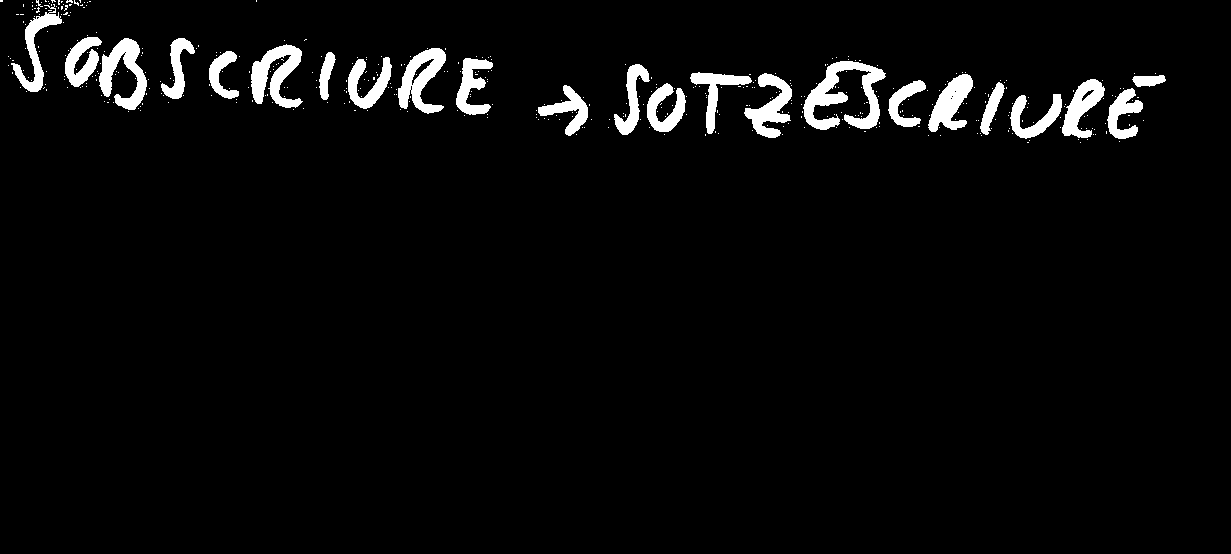 SOBSCRIURE → SOTZESCRIURE